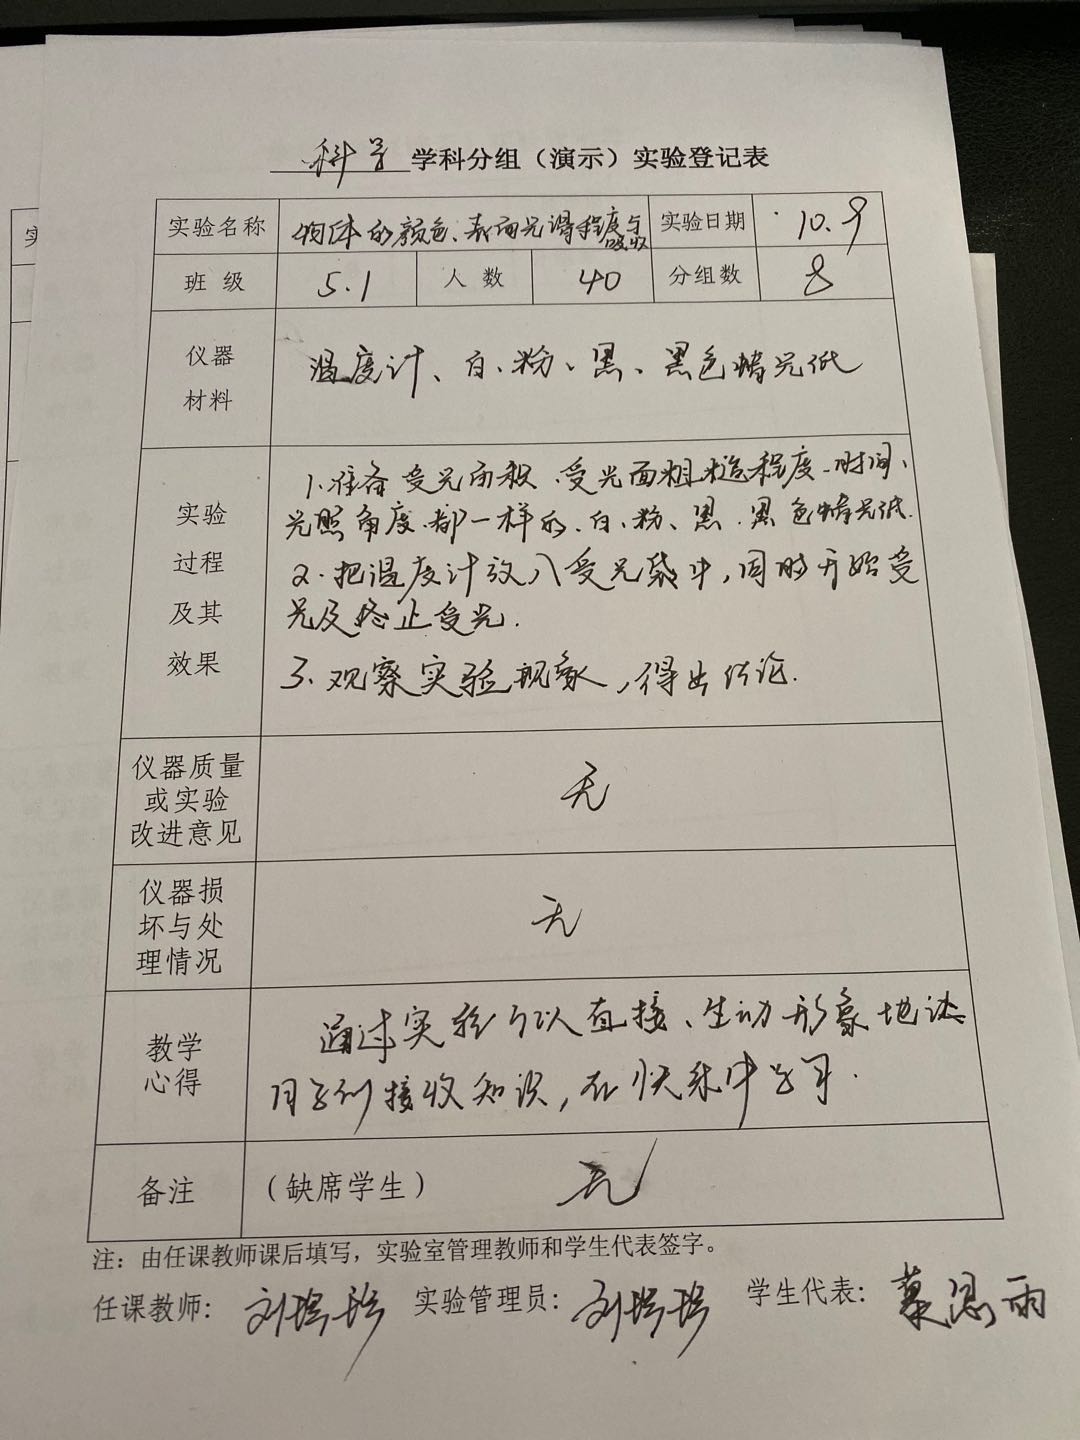 科学 学科分组（演示）实验登记表
实验名称 物体的颜色、表面光滑程度与吸收 实验日期 10.9
班 级 5.1 人 数 40 分组数 8
仪器
材料
温度计、白、粉、黑、黑色蜡光纸
实验
过程
及其
效果
1.准备受光面积、受光面粗糙程度、时间、
光照角度都一样的、白、粉、黑、黑色蜡光纸.
2.把温度计放入受光袋中,同时开始受
光及终止受光.
3.观察实验现象,得出结论.
仪器质量
或实验
改进意见
无
仪器损
坏与处
理情况
无
教学
心得
通过实验可以直接、生动形象地让
同学们接收知识,在快乐中学习.
备注 （缺席学生） 无
注：由任课教师课后填写，实验室管理教师和学生代表签字。
任课教师： 刘 实验管理员： 刘 学生代表： 思雨